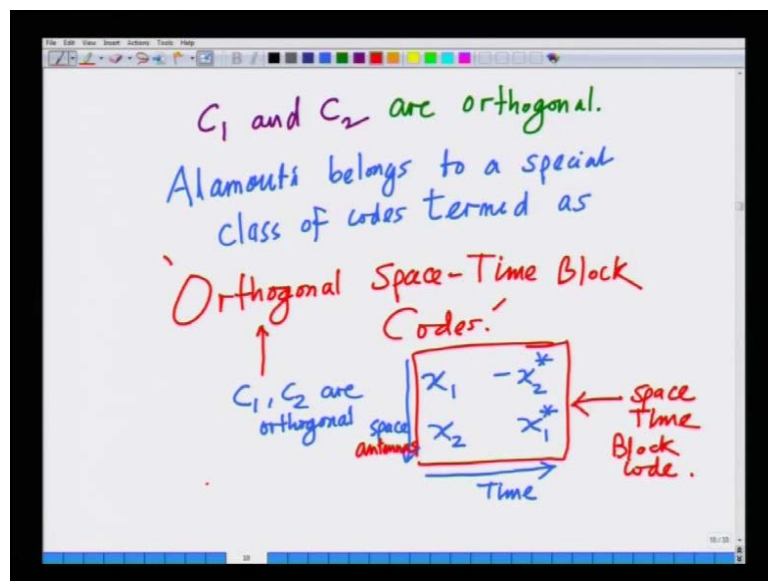 File Edit View Insert Actions Tools Help
C₁ and C₂ are orthogonal.
Alamouti belongs to a special
class of codes termed as
'Orthogonal Space-Time Block
Codes.'
C₁, C₂ are
orthogonal
space
antennas
x₁ -x₂*
x₂ x₁*
Time
space
Time
Block
code.
10